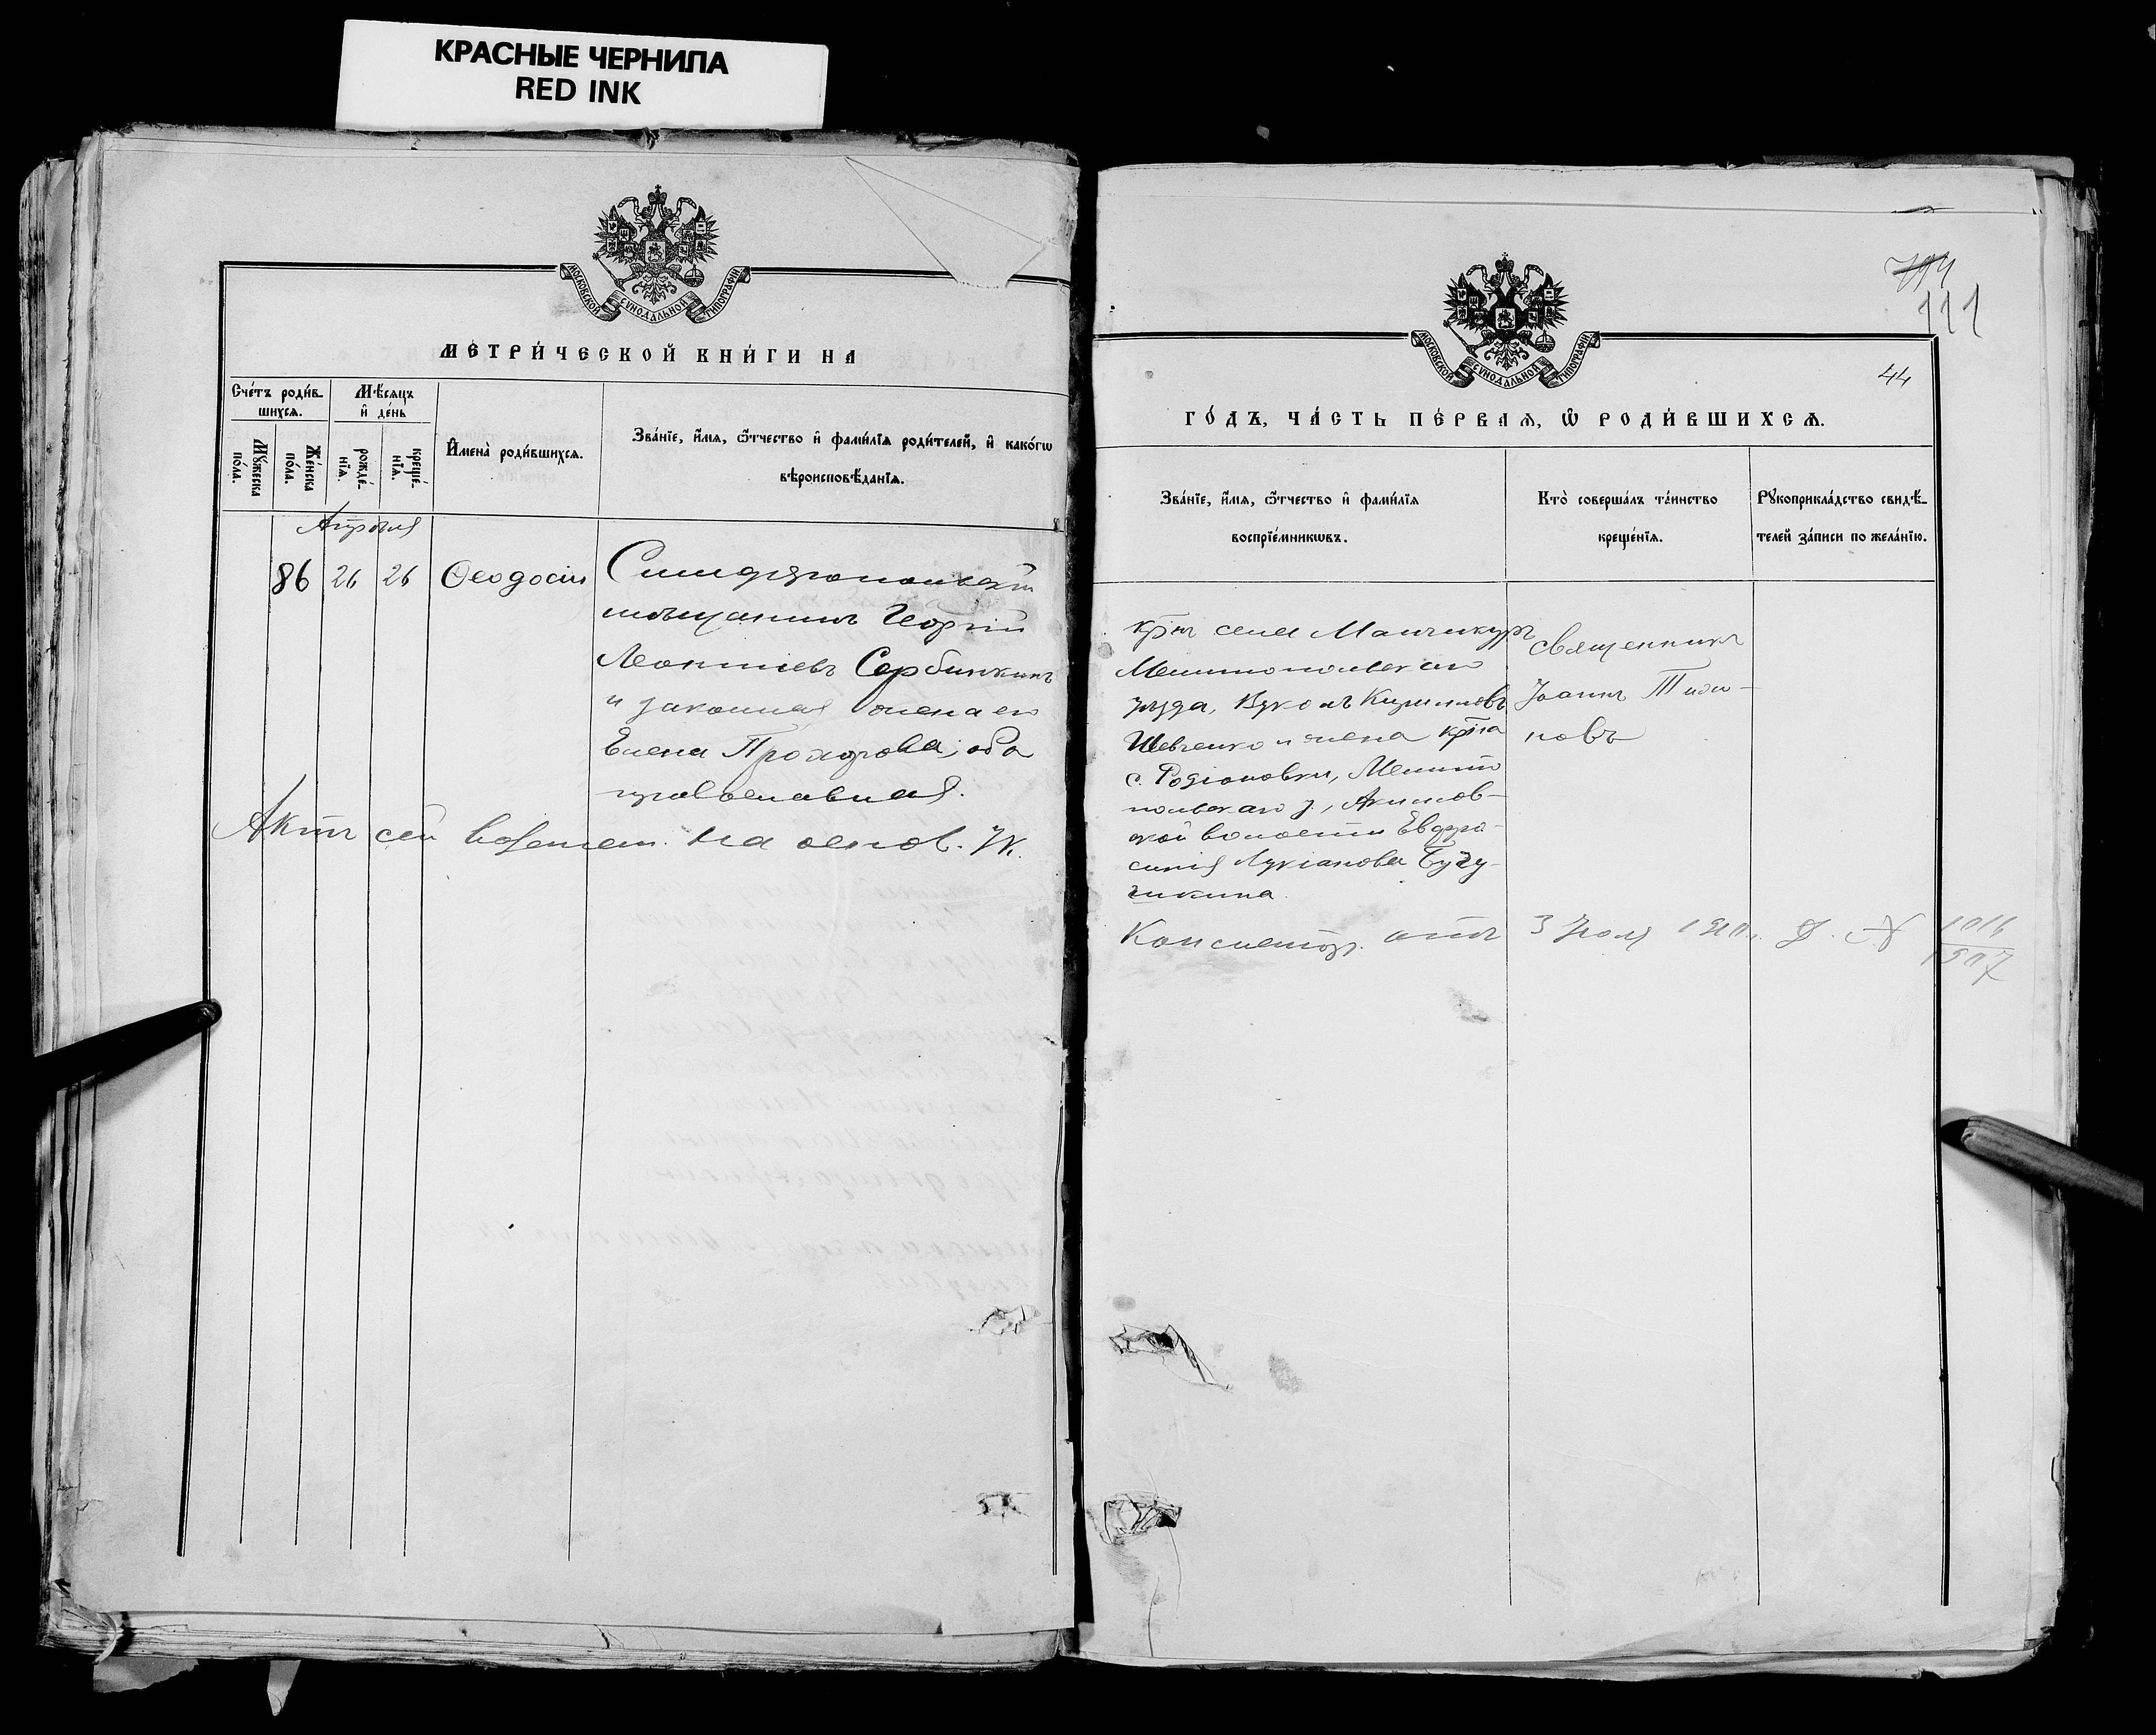 КРАСНЫЕ ЧЕРНИЛА
RED INK
МОСКОВСКОЙ СУНОДАЛЬНОЙ ТИПОГРАФІИ
МЕТРИ́ЧЕСКОЙ КНИ́ГИ НА
Сче́тъ роди́в-
шихсѧ.
Мѣ́сѧцъ
и҆ де́нь
Мꙋ́жеска
по́ла.
Же́нска
по́ла.
рожде́-
нїѧ.
креще́-
нїѧ.
И҆мена̀ роди́вшихсѧ.
Зва́нїе, и҆́мѧ, ѻ҆́тчество и҆ фами́лїѧ роди́телей, и҆ како́гѡ
вѣроисповѣ́данїѧ.
Апрѣля
86 26 26 Ѳеодосія
Симферопольскій
мѣщанинъ Георгій
Леонтіевъ Сербинкинъ
и законная жена его
Елена Прохорова, оба
православная.
Актъ сей возстан. на основ. Ук.
МОСКОВСКОЙ СУНОДАЛЬНОЙ ТИПОГРАФІИ
111
44
ГО́ДЪ, ЧА́СТЬ ПЕ́РВАѦ, Ѽ РОДИ́ВШИХСѦ.
Зва́нїе, и҆́мѧ, ѻ҆́тчество и҆ фами́лїѧ
воспрїе́мникѡвъ.
Кто̀ соверша́лъ та́инство
креще́нїѧ.
Рꙋкоприкла́дство свидѣ́-
телей за́писи по жела́нїю.
кр-нъ села
Мелитопольскаго
уѣзда, Вуколъ
Шевченко и жена кр-на
с. Родіоновки, Мелито
польскаго у., Акимов-
ской волости Евфро-
синія Лукіанова
священникъ
Іоаннъ Тихо-
новъ
Консистор. отъ 3 Іюля 1910 г. Д. №
1016
1907